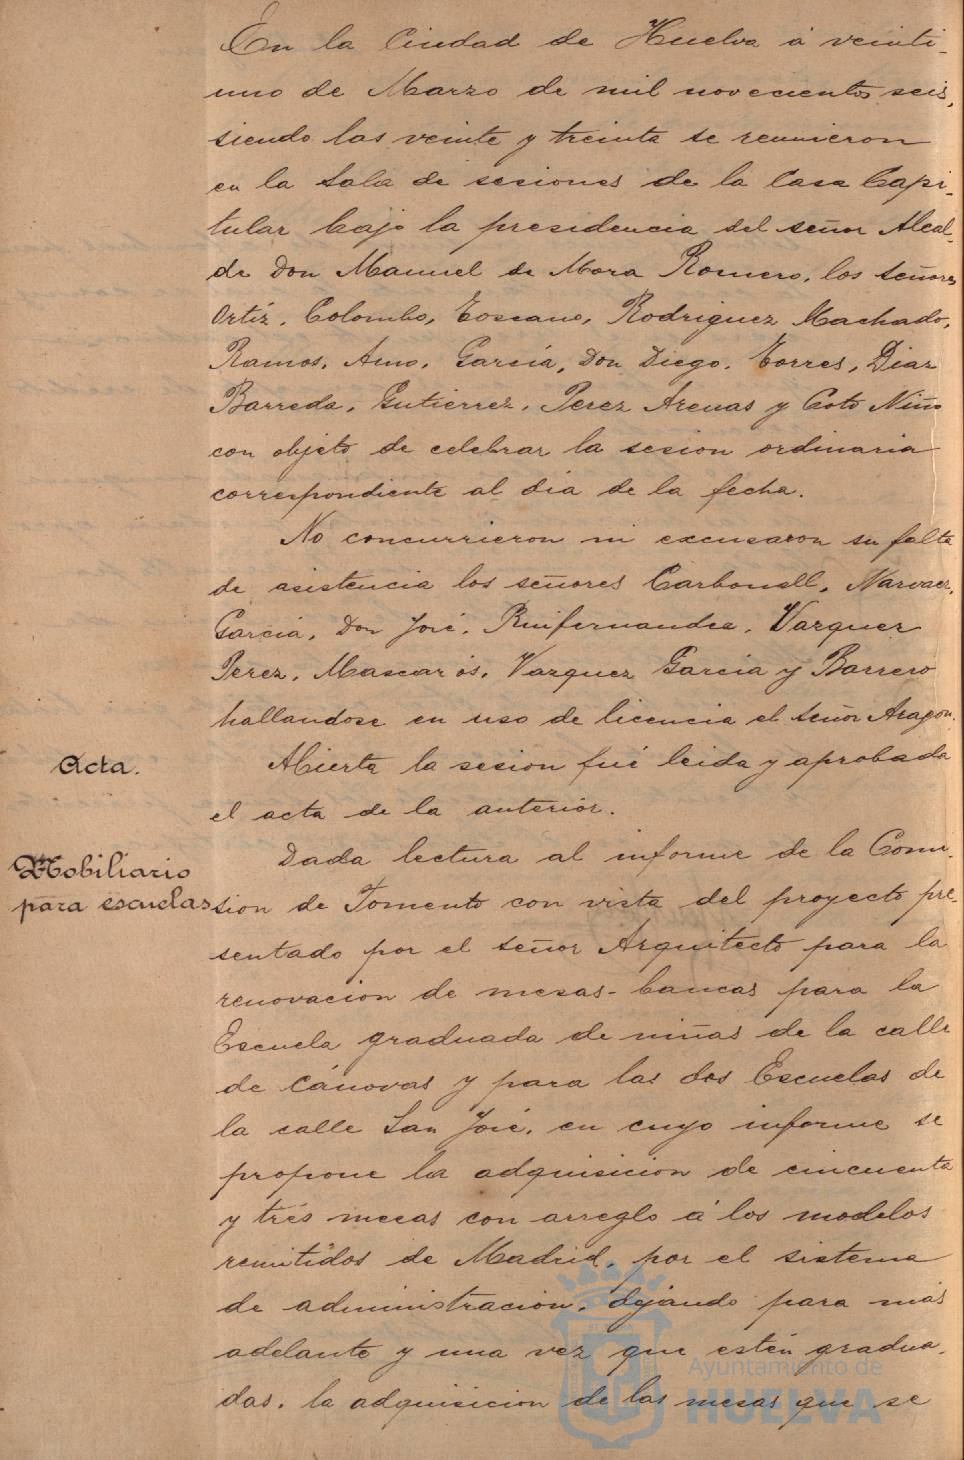 En la Ciudad de Huelva á veinti-
uno de Marzo de mil novecientos seis,
siendo las veinte y treinta se reunieron
en la Sala de sesiones de la Casa Capi-
tular bajo la presidencia del señor Alcal-
de Don Manuel de Mora Romero, los señores
Ortíz, Colombo, Toscano, Rodriguez Machado,
Ramos, Amo, García, Don Diego, Torres, Diaz
Barreda, Gutierrez, Perez Arenas y Coto Niño
con objeto de celebrar la sesion ordinaria
correspondiente al dia de la fecha.
No concurrieron ni excusaron su falta
de asistencia los señores Carbonell, Narvaez,
García, Don José, Ruifernandez, Vazquez
Perez, Mascarós, Vazquez García y Barrero
hallandose en uso de licencia el señor Aragon.
Acta.
Abierta la sesion fué leida y aprobada
el acta de la anterior.
Mobiliario
para escuelas
Dada lectura al informe de la Comi-
sion de Fomento con vista del proyecto pre-
sentado por el señor Arquitecto para la
renovacion de mesas-bancas para la
Escuela graduada de niñas de la calle
de Cánovas y para las dos Escuelas de
la calle San José, en cuyo informe se
propone la adquisicion de cincuenta
y trés mesas con arreglo á los modelos
remitidos de Madrid, por el sistema
de administracion, dejando para más
adelante y una vez que estén gradua-
das, la adquisicion de las mesas que se
Ayuntamiento de
HUELVA